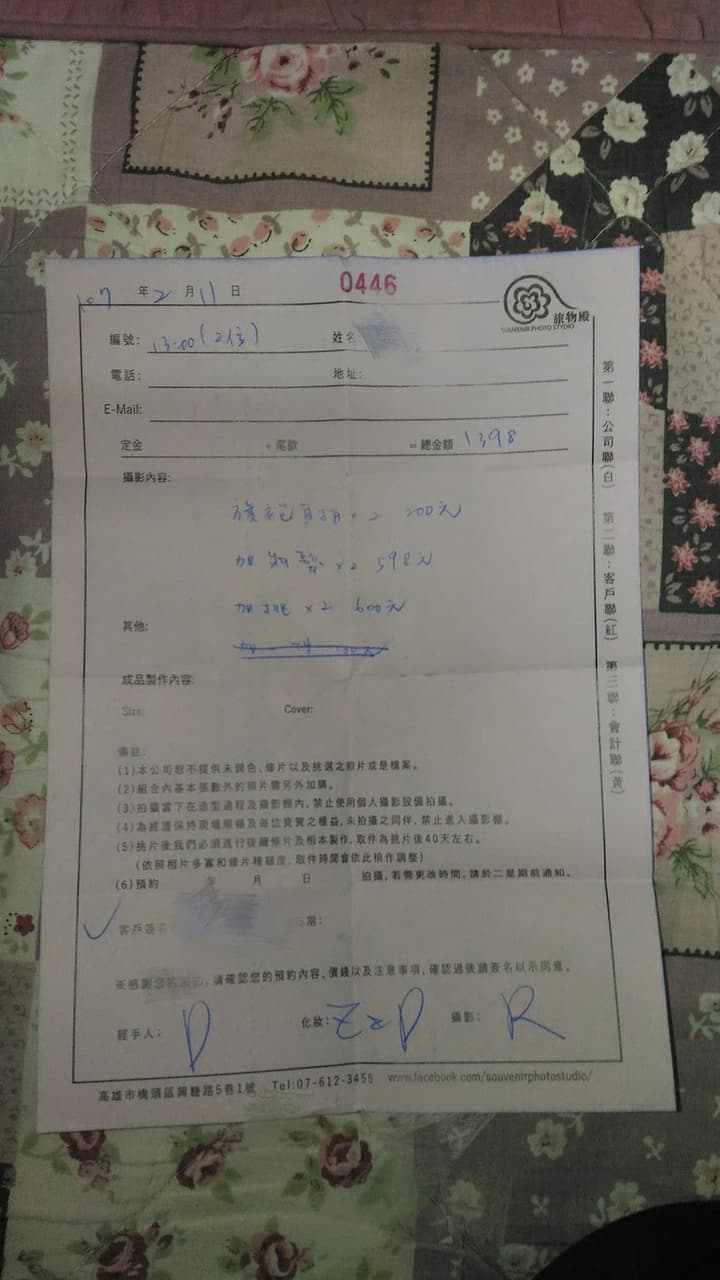 107 年 2 月 11 日
0446
旅物殿
SOUVENIR PHOTO STUDIO
編號: 13:00 (2位) 姓名
電話: 地址:
E-Mail:
定金 + 尾款 = 總金額 1398
攝影內容:
x 2 200元
加 x 2 598元
加挑 x 2 600元
其他:
成品製作內容:
Size: Cover:
備註:
(1)本公司恕不提供未調色,修片以及挑選之照片或是檔案。
(2)組合內基本張數外的照片需另外加購。
(3)拍攝當下在造型過程及攝影棚內,禁止使用個人攝影設備拍攝。
(4)為維護保持現場順暢及每位貴賓之權益,未拍攝之同伴,禁止進入攝影棚。
(5)挑片後我們必須進行後續修片及相本製作,取件為挑片後40天左右。
(依照相片多寡和修片種程度,取件時間會依此稍作調整)
(6)預約 年 月 日 拍攝,若需更改時間,請於二星期前通知。
客戶簽名
※感謝您 ,請確認您的預約內容,價錢以及注意事項,確認過後請簽名以示同意。
經手人: D 化妝: ZzP 攝影: R
高雄市橋頭區興糖路5巷1號 Tel:07-612-3455 www.facebook.com/souvenirphotostudio/
第一聯:公司聯(白) 第二聯:客戶聯(紅) 第三聯:會計聯(黃)